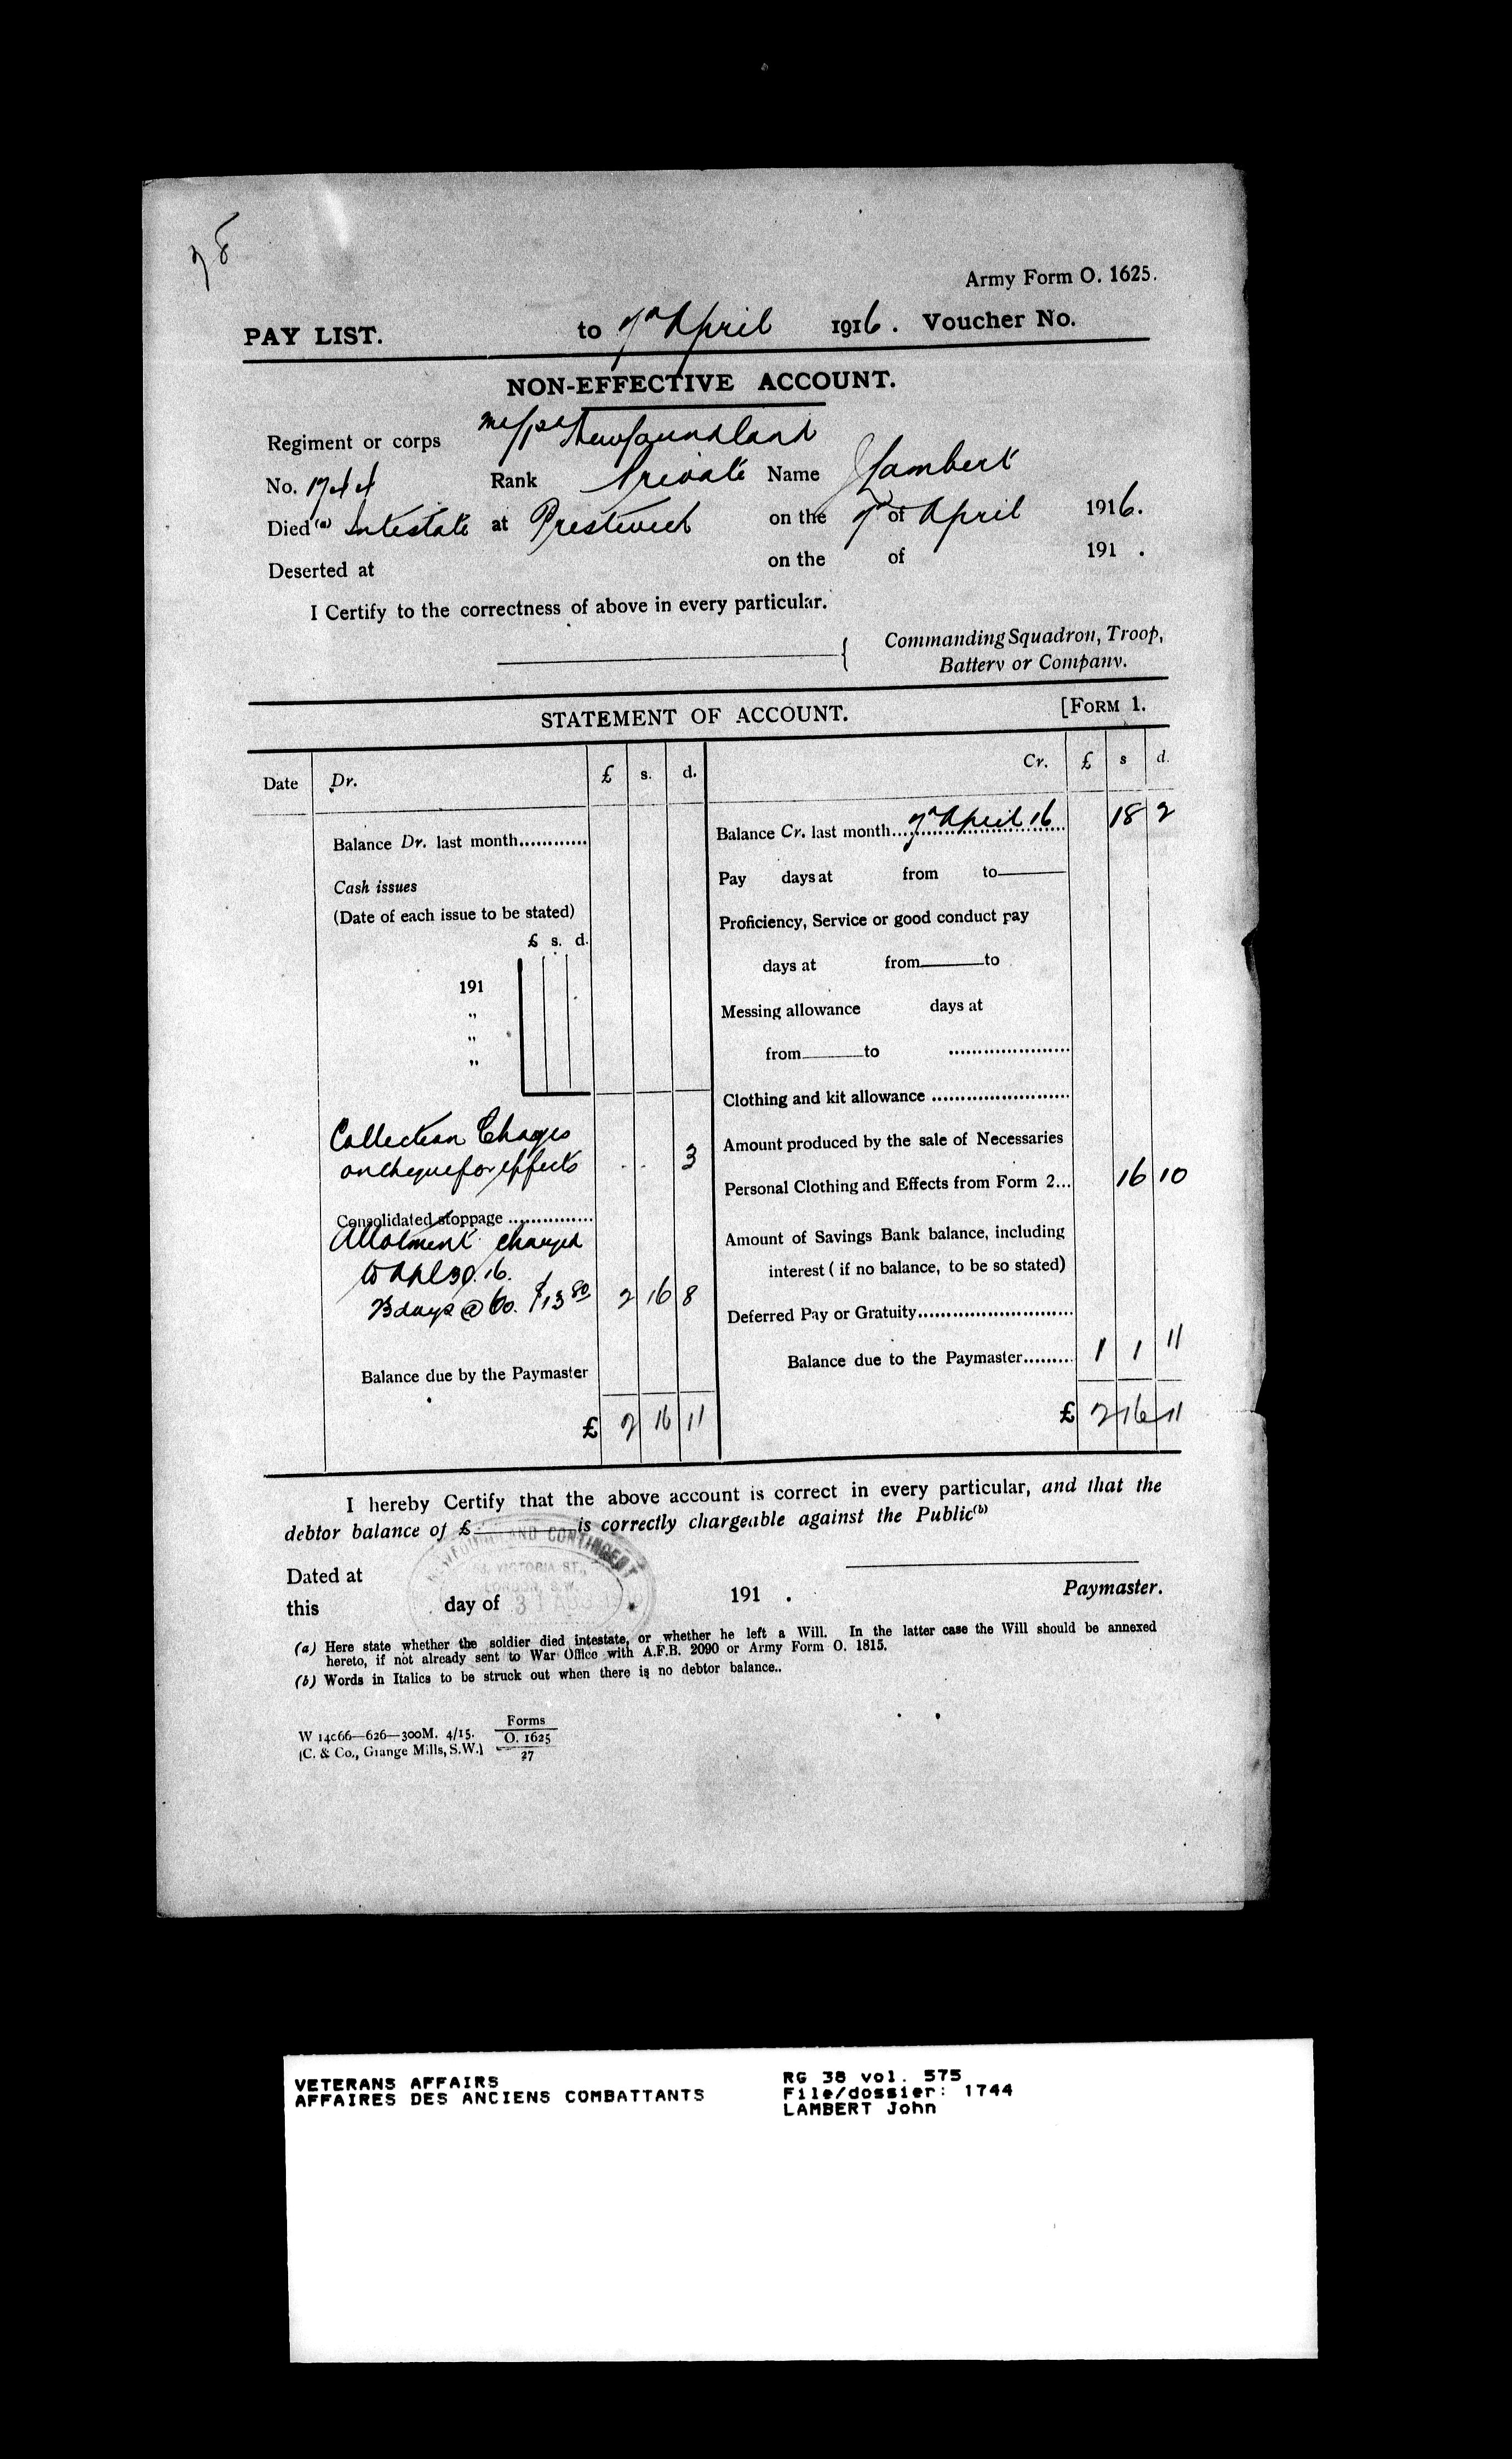 78
Army Form O. 1625.
PAY LIST. to 7th April 1916. Voucher No.
NON-EFFECTIVE ACCOUNT.
Regiment or corps Newfoundland
No. 1744 Rank Private Name J Lambert
Died (a) Intestate at Prestwich on the 7th of April 1916.
Deserted at on the of 191 .
I Certify to the correctness of above in every particular.
Commanding Squadron, Troop,
Battery or Company.
STATEMENT OF ACCOUNT. [FORM 1.
Date Dr. £ s. d. Cr. £ s d.
Balance Dr. last month............
Cash issues
(Date of each issue to be stated)
£ s. d.
191
"
"
"
Collection Chages
on cheque for effects . . 3
Consolidated stoppage ...............
Allotment charged
to Apl 30. 16.
23 days @ 60. $13 80 2 16 8
Balance due by the Paymaster
£ 2 16 11
Balance Cr. last month... 7th April 16 18 2
Pay days at from to
Proficiency, Service or good conduct pay
days at from to
Messing allowance days at
from to ......................
Clothing and kit allowance ........................
Amount produced by the sale of Necessaries
Personal Clothing and Effects from Form 2... 16 10
Amount of Savings Bank balance, including
interest ( if no balance, to be so stated)
Deferred Pay or Gratuity...........................
Balance due to the Paymaster......... 1 1 11
£ 2 16 11
I hereby Certify that the above account is correct in every particular, and that the
debtor balance of £ is correctly chargeable against the Public (b)
NEWFOUNDLAND CONTINGENT
VICTORIA ST.,
LONDON, S.W.
31 AUG
Dated at
this day of 191 . Paymaster.
(a) Here state whether the soldier died intestate, or whether he left a Will. In the latter case the Will should be annexed
hereto, if not already sent to War Office with A.F.B. 2090 or Army Form O. 1815.
(b) Words in Italics to be struck out when there is no debtor balance..
W 14c66—626—300M. 4/15.
(C. & Co., Grange Mills, S.W.)
Forms
O. 1625
27
VETERANS AFFAIRS
AFFAIRES DES ANCIENS COMBATTANTS
RG 38 vol. 575
File/dossier: 1744
LAMBERT John